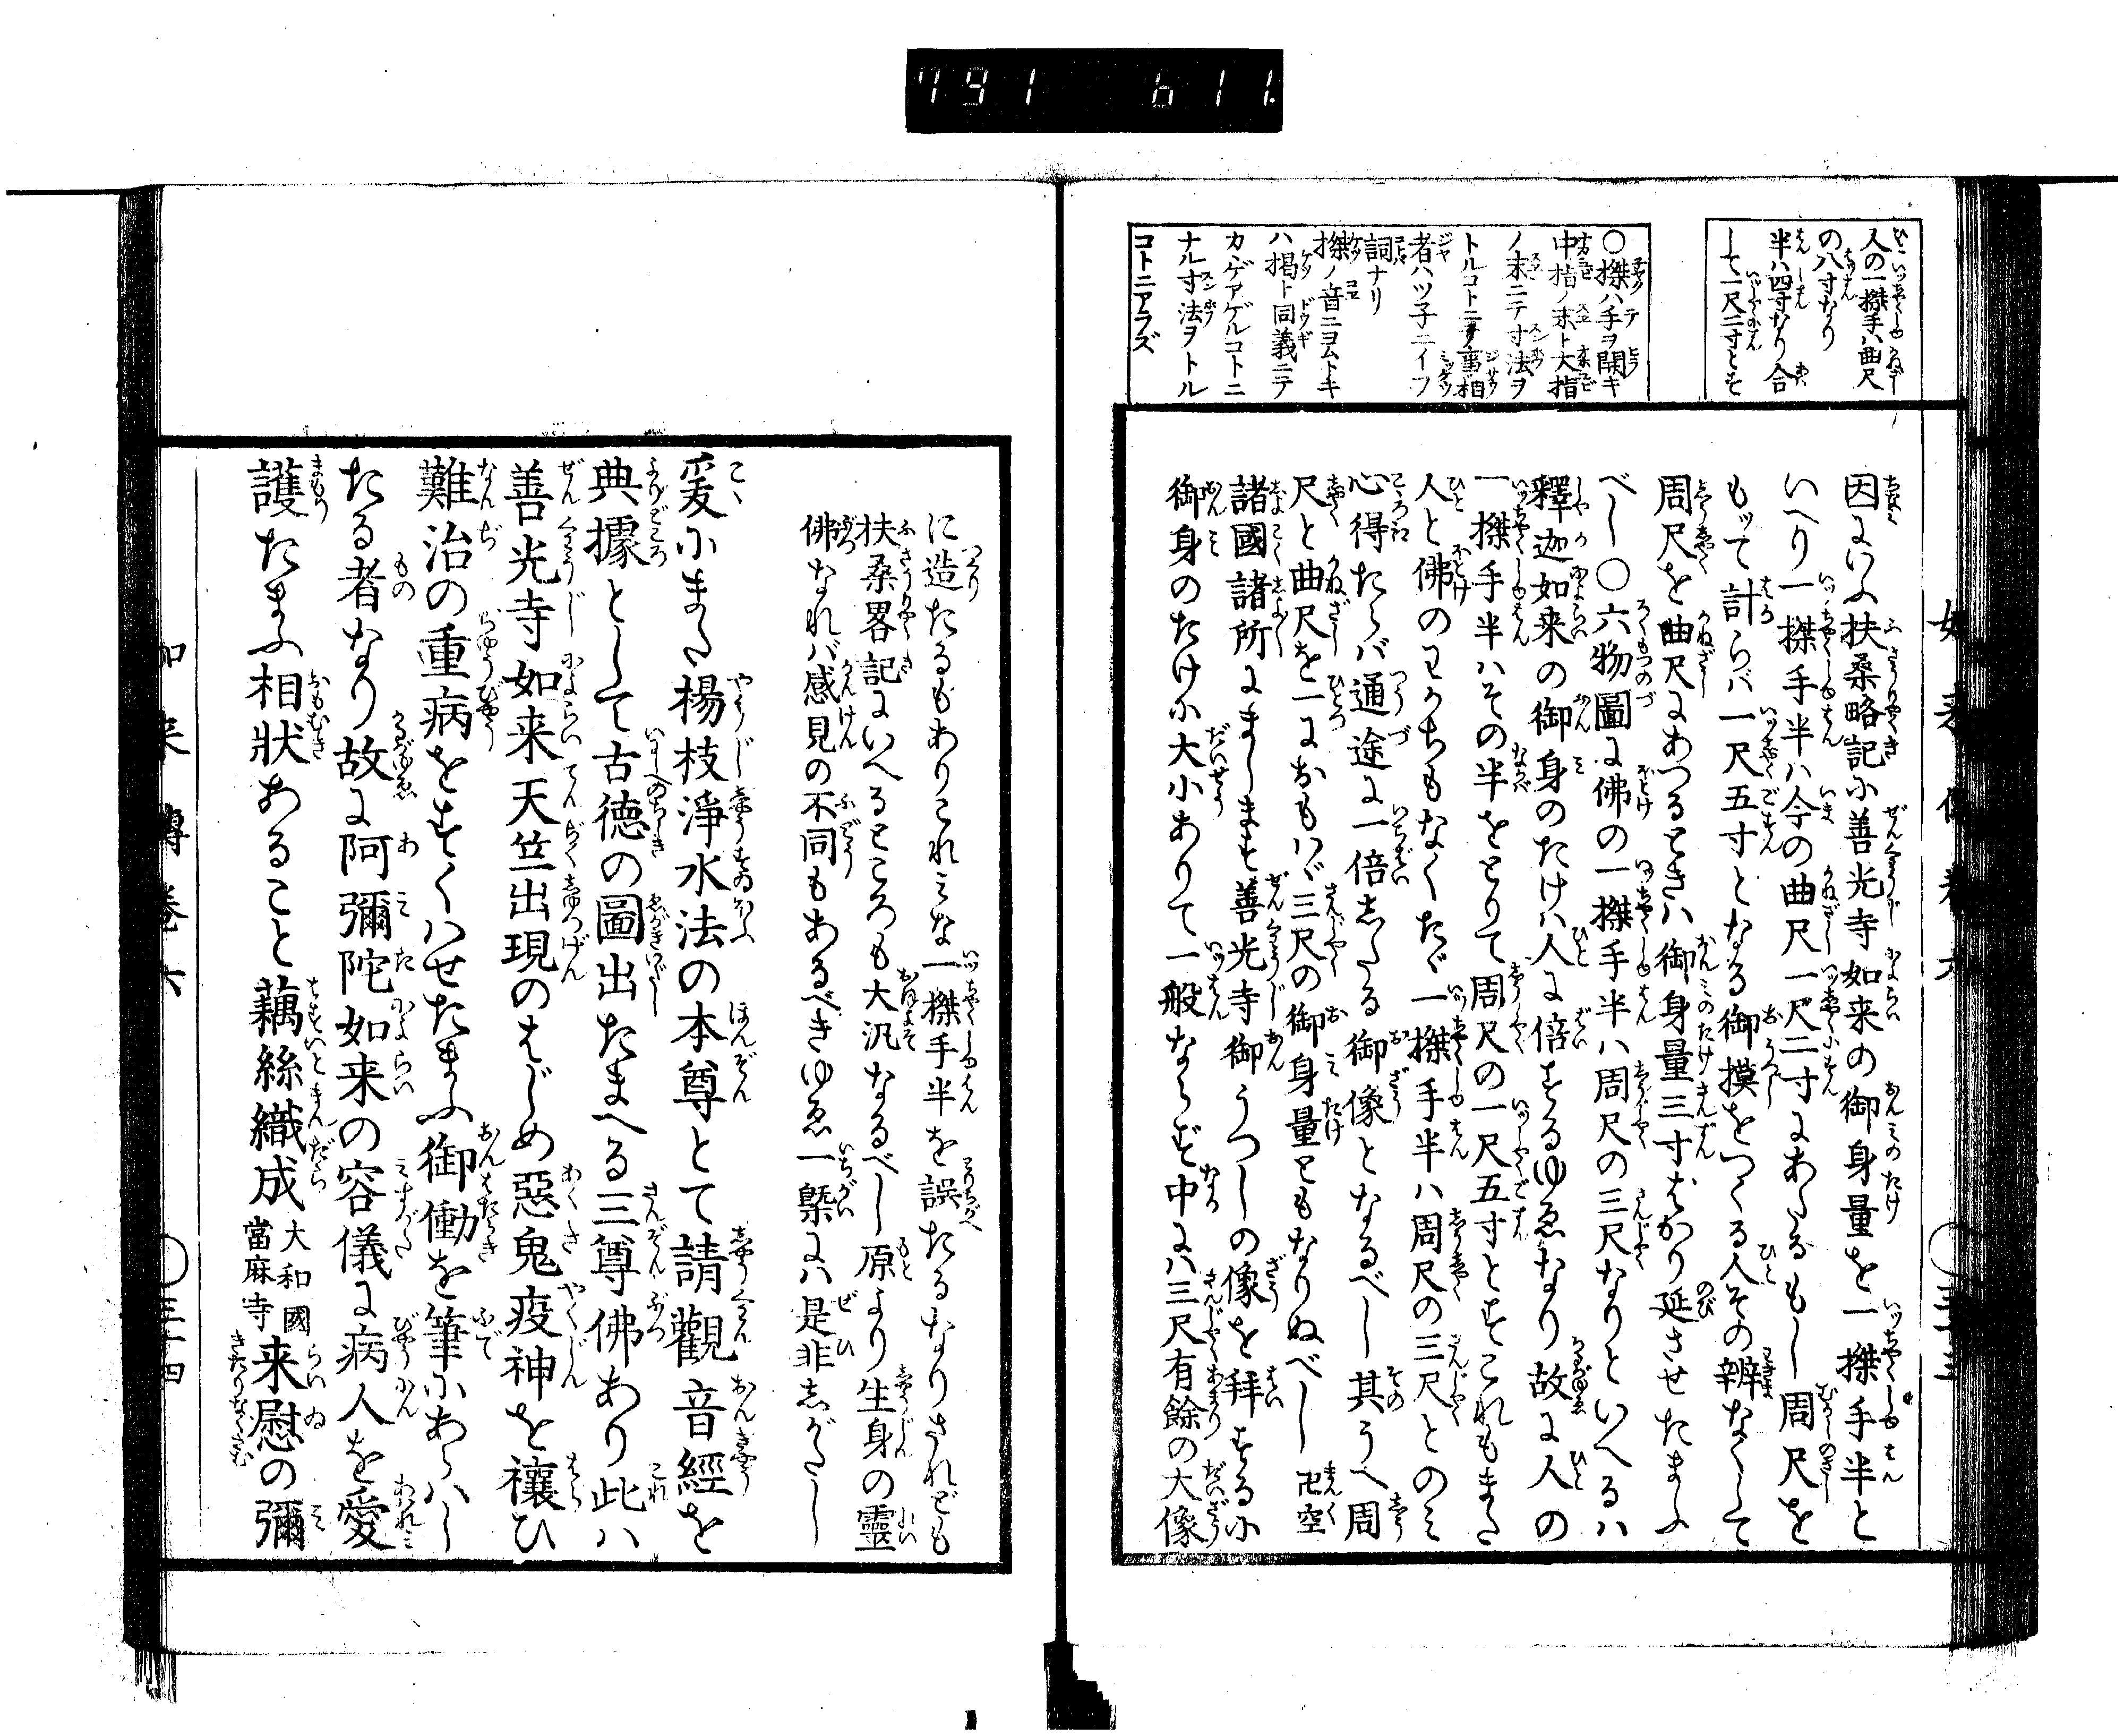 791 611.
人の一搩手ハ曲尺
の八寸なり
半ハ四寸なり合
して一尺二寸とす
〇搩ハ手ヲ開キ
中指ノ末ト大指
ノ末ニテ寸法ヲ
トルコトニテ事相
者ハツ子ニイフ
詞ナリ
搩ノ音ニヨムトキ
ハ揭ト同義ニテ
カヽゲアゲルコトニ
ナル寸法ヲトル
コトニアラズ
因にいふ扶桑略記に善光寺如来の御身量を一搩手半と
いへり一搩手半ハ今の曲尺一尺二寸にあたるもし周尺を
もッて計らバ一尺五寸となる御摸をつくる人その辨なくして
周尺を曲尺にあつるときハ御身量三寸ばかり延させたまふ
べし〇六物圖に佛の一搩手半ハ周尺の三尺なりといへるハ
釋迦如来の御身のたけハ人に倍するゆゑなり故に人の
一搩手半ハその半をとりて周尺の一尺五寸とすこれもまた
人と佛のわかちもなくたゞ一搩手半ハ周尺の三尺とのミ
心得たらバ通途に一倍志たる御像となるべし其うへ周
尺と曲尺を一におもハゞ三尺の御身量ともなりぬべし卍空
諸國諸所にまします善光寺御うつしの像を拜するに
御身のたけに大小ありて一般ならず中にハ三尺有餘の大像
に造たるもありこれミな一搩手半を誤たるなりされども
扶桑畧記にいへるところも大汎なるべし原より生身の靈
佛なれバ感見の不同もあるべきゆゑ一槩にハ是非志がたし
爰にまた楊枝淨水法の本尊とて請觀音經を
典據として古徳の圖出たまへる三尊佛あり此ハ
善光寺如来天竺出現のはじめ惡鬼疫神を禳ひ
難治の重病をすくハせたまふ御働を筆にあらハし
たる者なり故に阿彌陀如来の容儀に病人を愛
護たまふ相狀あること藕絲織成大和國當麻寺来慰の彌
如来傳卷六 〇三十四